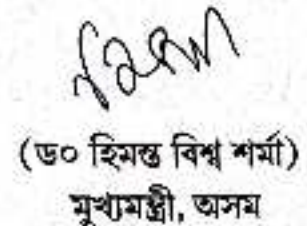 (ড০ হিমন্ত বিশ্ব শৰ্মা)
মুখ্যমন্ত্ৰী, অসম